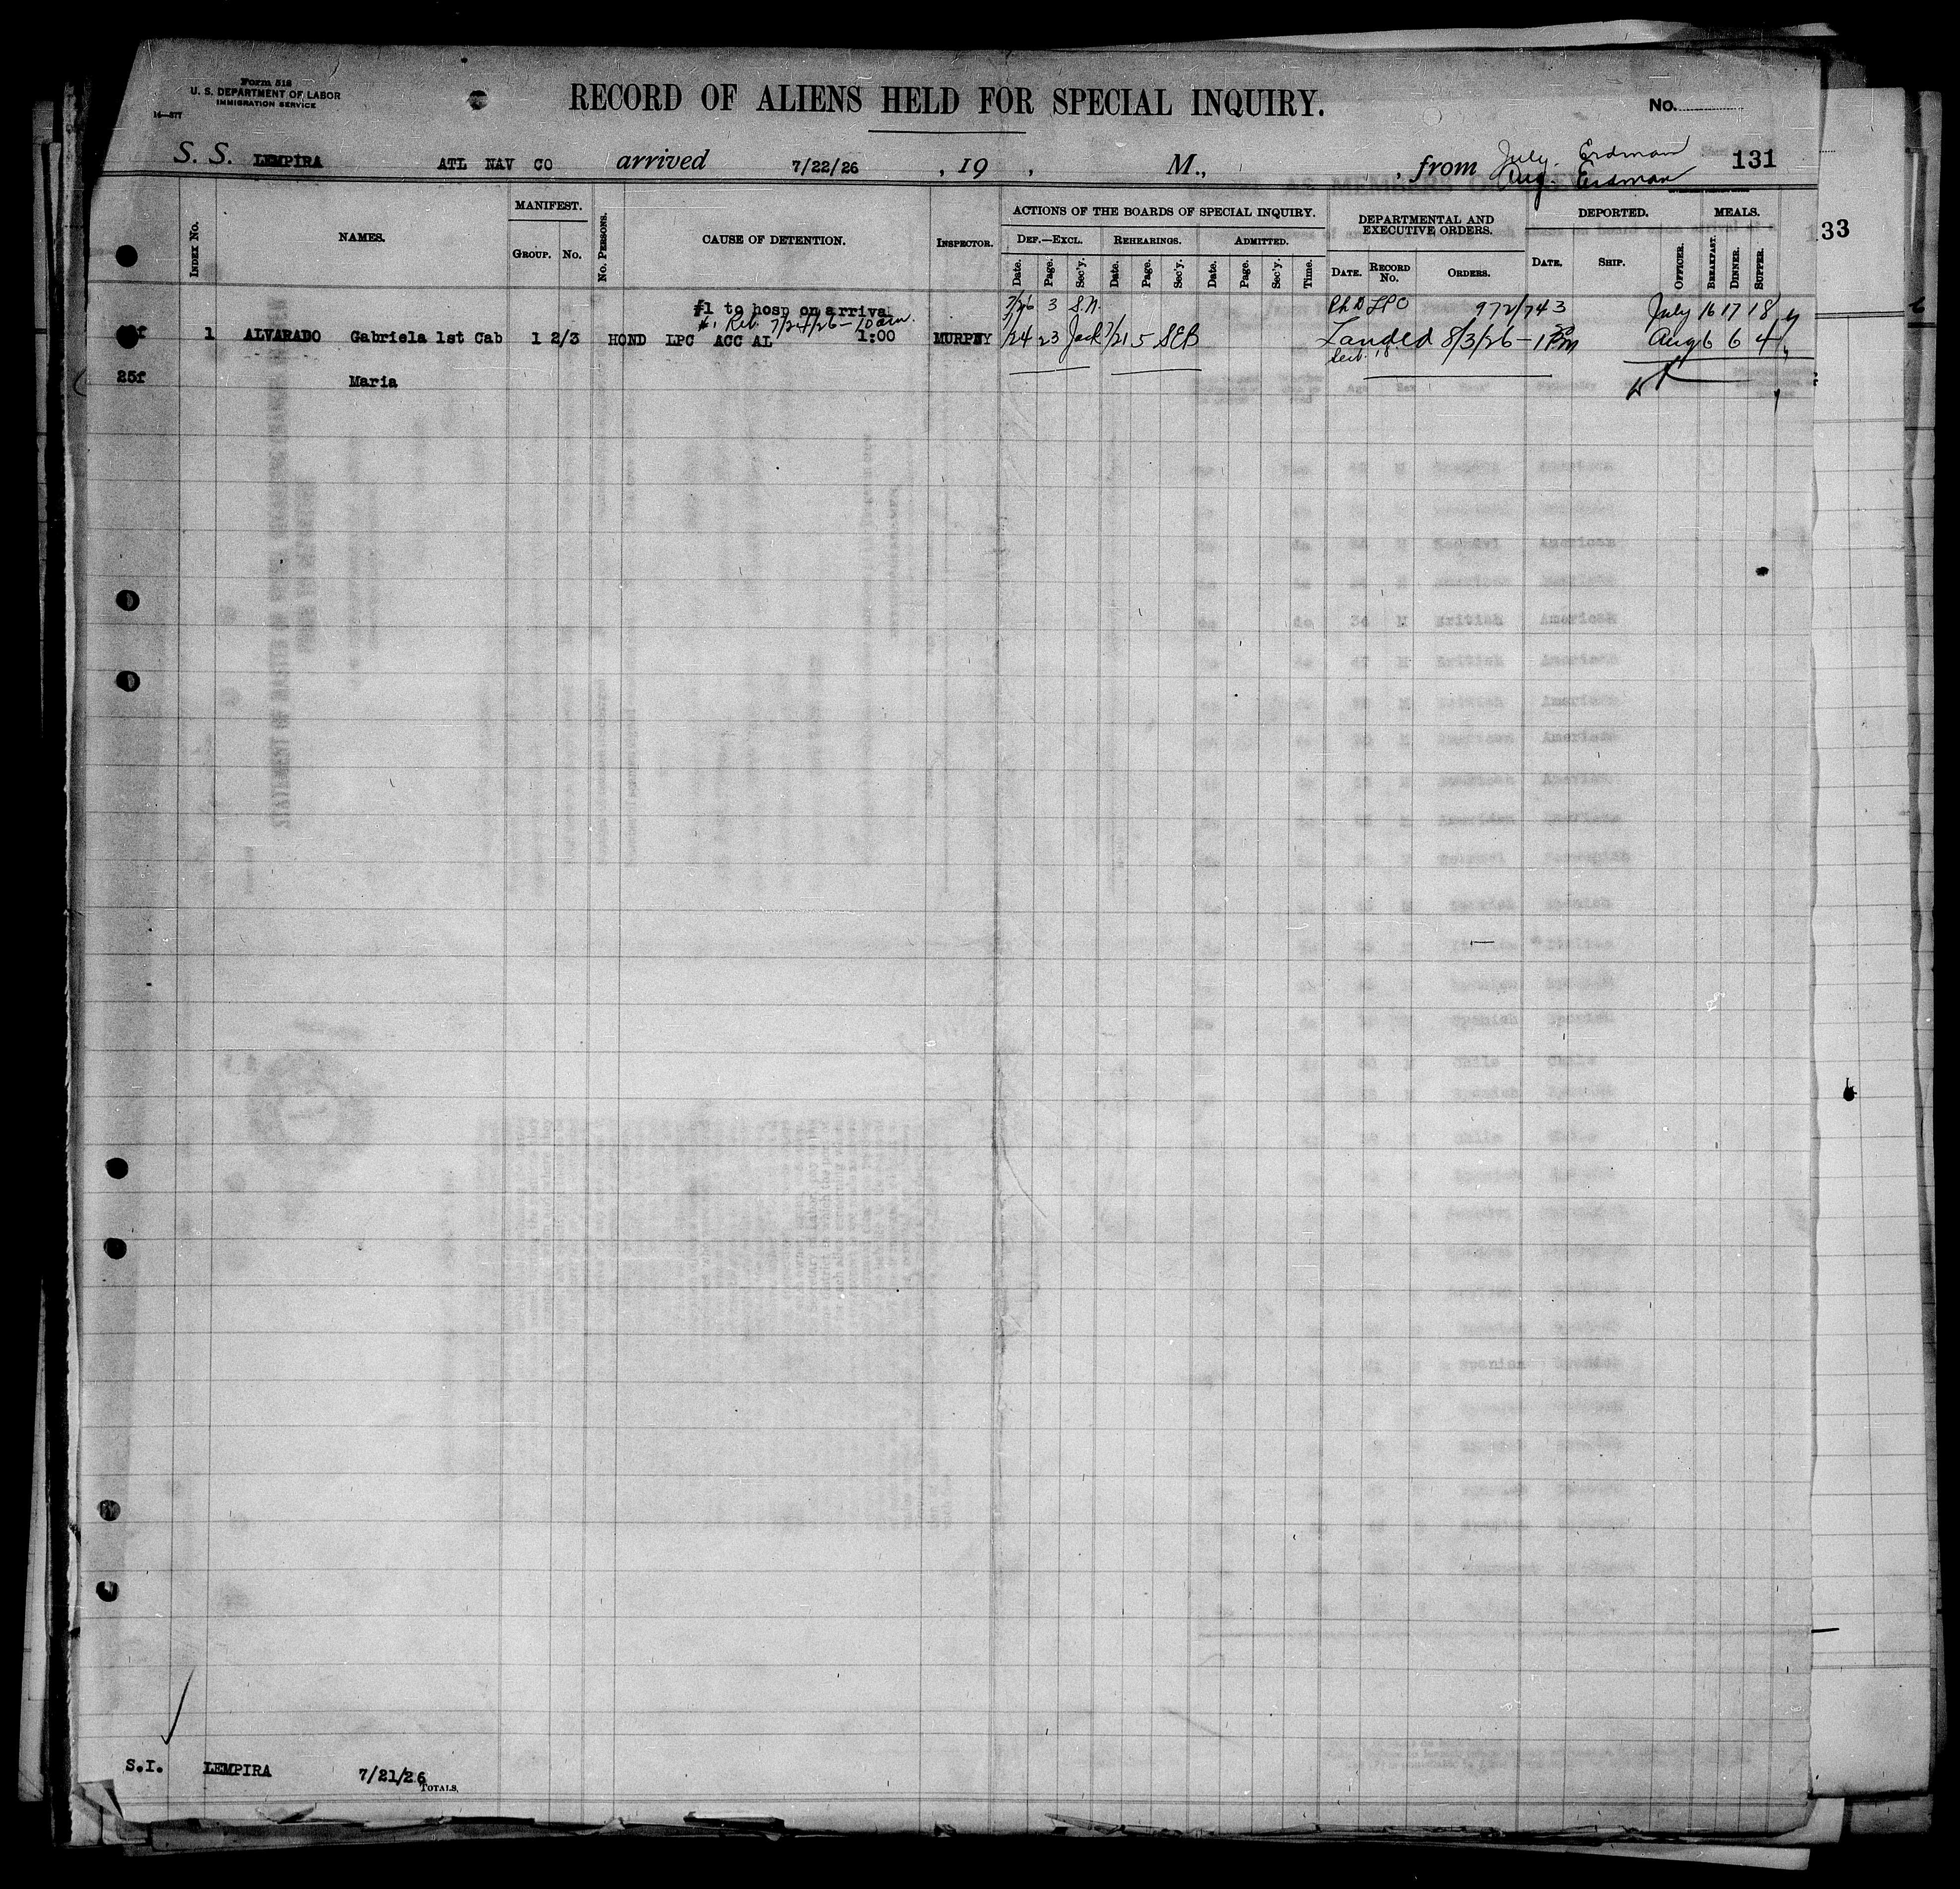 Form 518
U. S. DEPARTMENT OF LABOR
IMMIGRATION SERVICE
14—577
RECORD OF ALIENS HELD FOR SPECIAL INQUIRY.
No.
S. S. LEMPIRA ATL NAV CO arrived 7/22/26 , 19 , M., , from July. Erdman 131
Aug. Erdman
33
INDEX NO.
NAMES.
MANIFEST.
GROUP. NO.
NO. PERSONS.
CAUSE OF DETENTION.
INSPECTOR.
ACTIONS OF THE BOARDS OF SPECIAL INQUIRY.
DEF.—EXCL. REHEARINGS. ADMITTED.
Date. Page. Sec'y. Date. Page. Sec'y. Date. Page. Sec'y. Time.
DEPARTMENTAL AND
EXECUTIVE ORDERS.
DATE. RECORD NO. ORDERS.
DEPORTED.
DATE. SHIP. OFFICER.
MEALS.
BREAKFAST. DINNER. SUPPER.
#1 to hosp on arrival 7/26 3 S.N. 972/743 July 16 17 18
#1 Rel. 7/24/26 — 10 am.
1 ALVARADO Gabriela 1st Cab 1 2/3 HOND LPC ACC AL 1:00 MURPHY 7/24 23 Jack 7/21 5 SEB Landed 8/3/26 — 1 PM Aug 6 6 4
25f Maria
S.I. LEMPIRA 7/21/26
TOTALS.